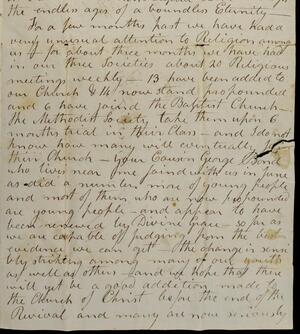 the endless ages of a boundless Eternity
For a few months past we have had a
very unusual attention to Religion among
us - for about three months we have had
in our three Societies about 20 Religious
meetings weekly - 13 have been added to
our Church & 14 now stand propounded
and 6 have joind the Baptist Church
The Methodist Society take them upon 6
months trial in their Class - and I do not
know how many will eventually
their Church - your Cousen George Bond
who lives near me joind with us in June
as did a number more of young people
and most of them who are now propounded
are young people - and appear to have
been renewed by Divine grace so far as
we are capable of judging from the best
evidence we can get - the change is sensi
bly striking among many of our youth
as well as others - and we hope that there
will yet be a good addiction made to
the Church of Christ before the end of the
Revival and many are now seriously